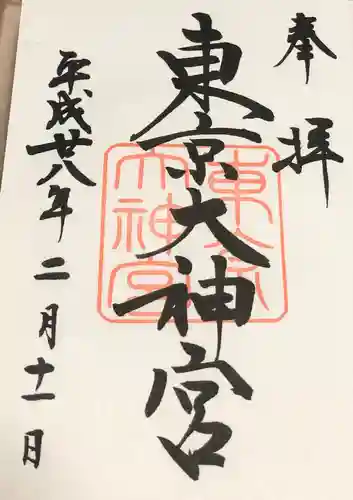 奉拝
東京大神宮
東京大神宮
平成廿八年二月十一日